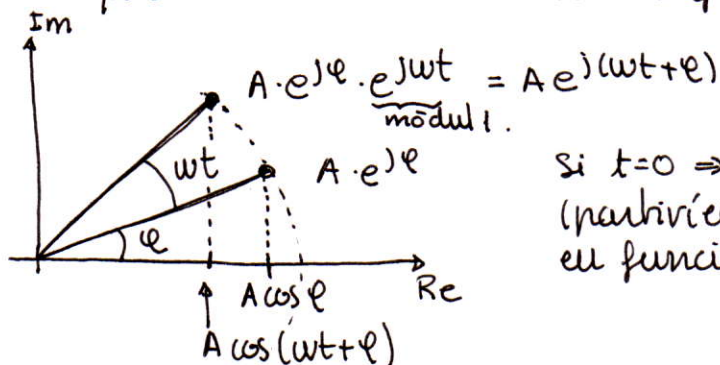 Im
A·e^jφ · e^jωt = A e^j(ωt+φ)
mòdul 1.
ωt
A·e^jφ
si t=0 ⇒
φ
en funci
A cos φ
Re
A cos(ωt+φ)